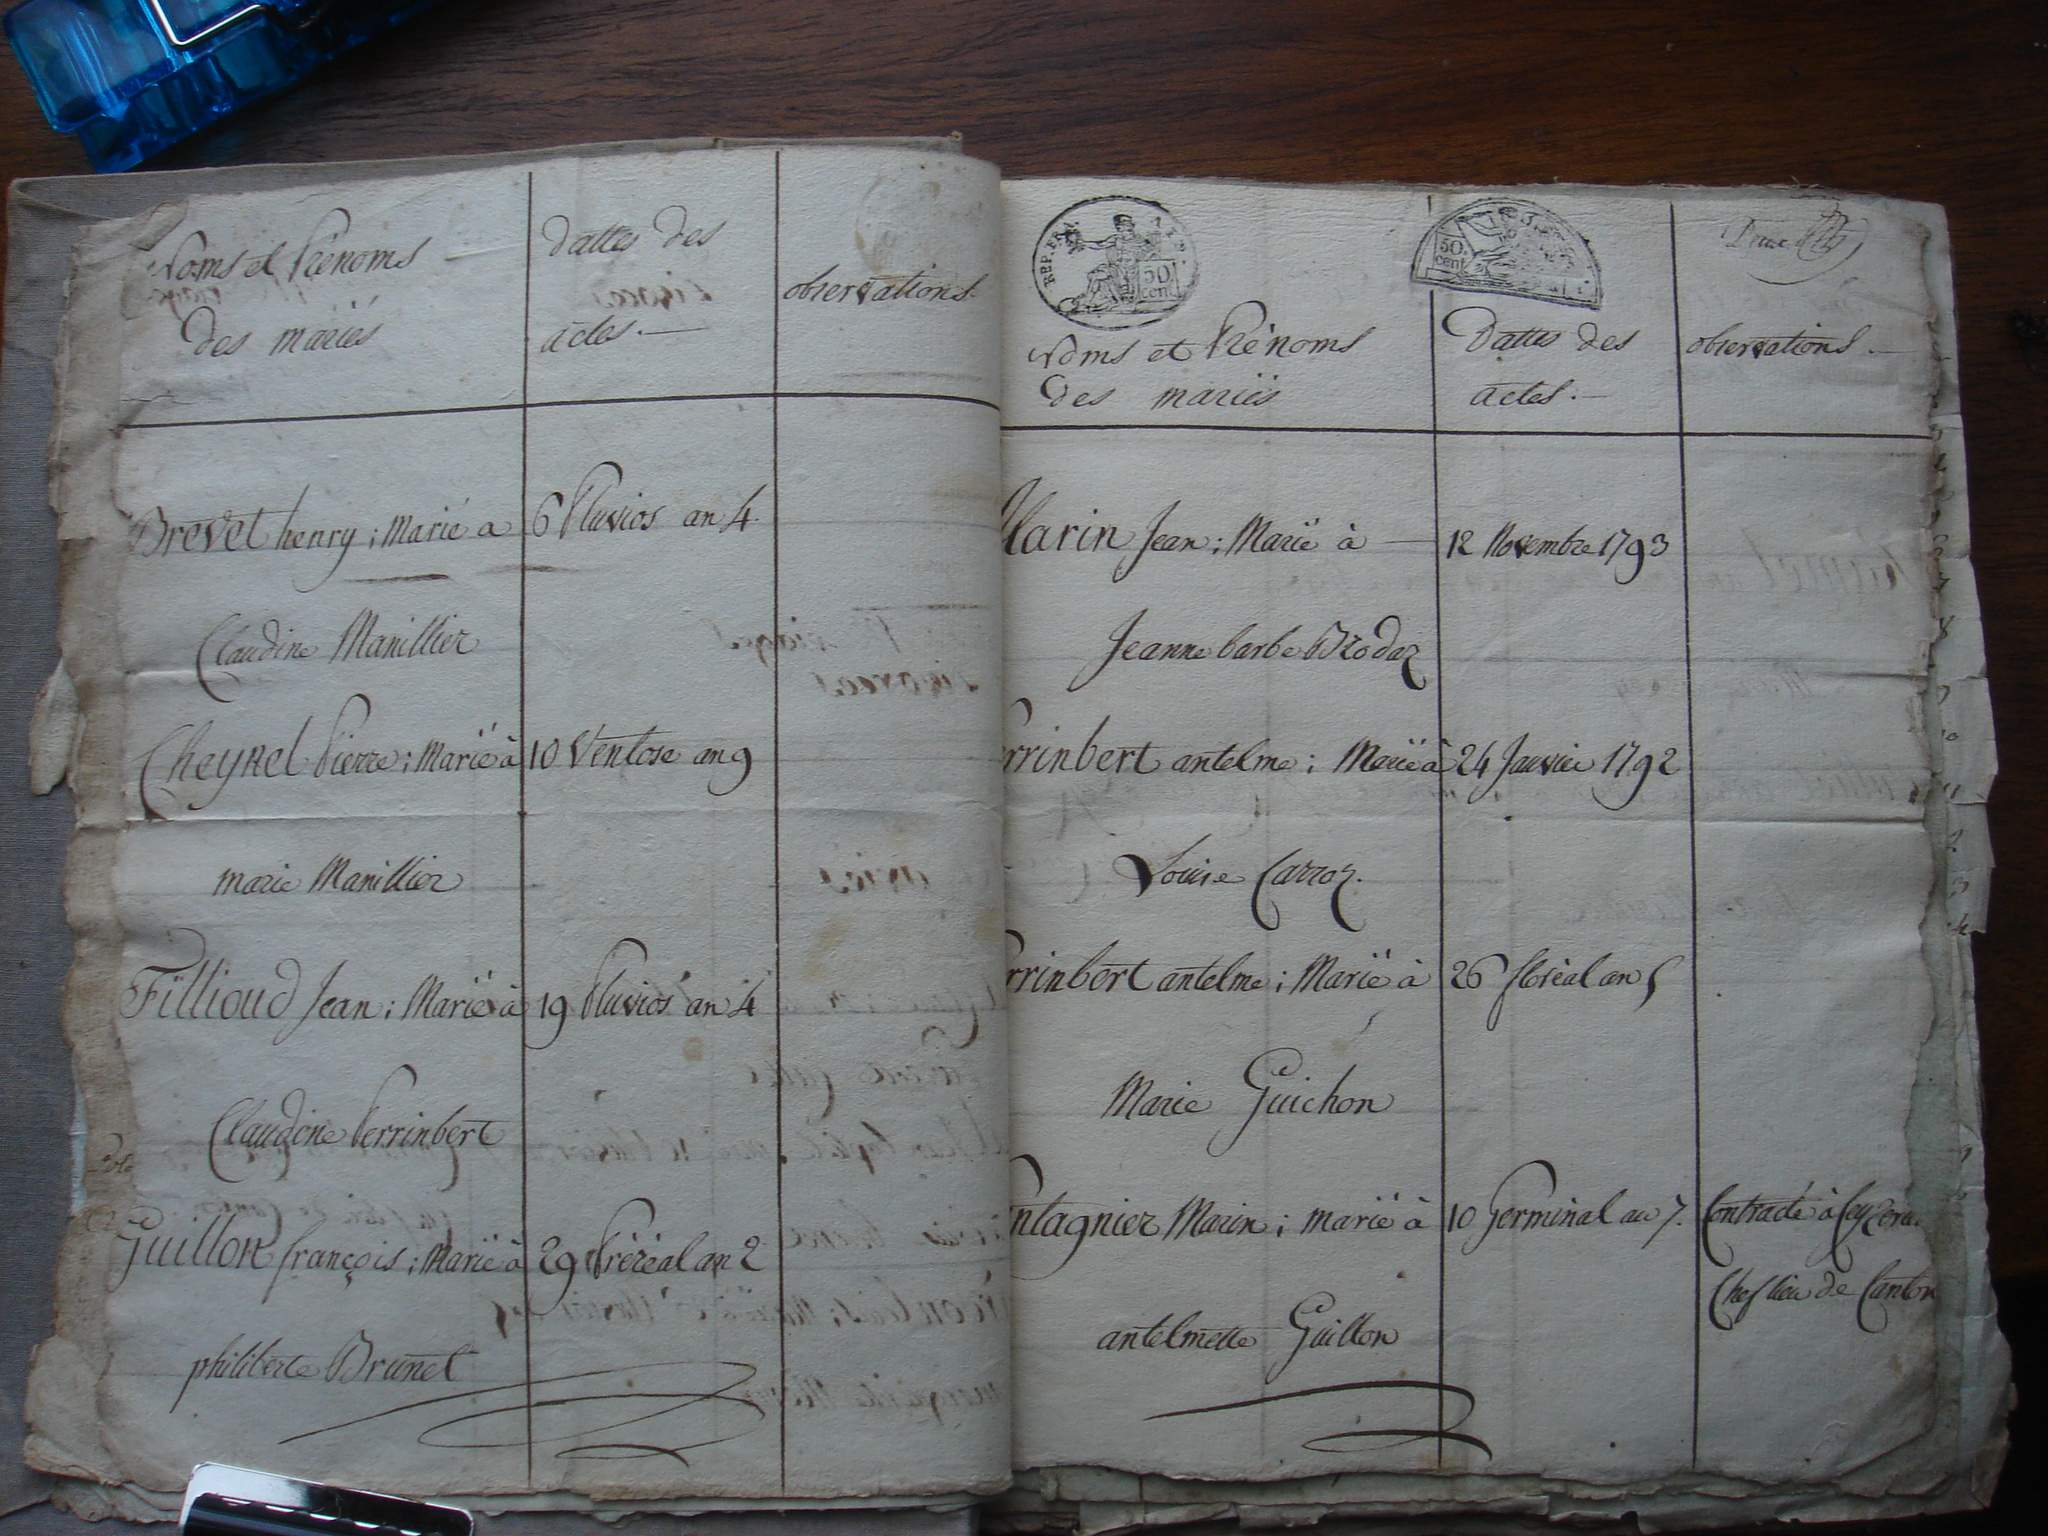 Noms et Prénoms
des mariés
dattes des
actes.
observations.
Brevet henry; Marié a 6 Pluvios an 4.
Claudine Manillier
Cheynel Pierre; Marïé à 10 Ventose an 9
marie Manillier
Fillioud Jean; Marïé à 19 Pluvios an 4
Claudine Perrinbert
Guillon françois; Marïé à 29 Préréal an 2
philiberte Brunet
REP. FRA.
50
cent
50.
cent
Noms et Prénoms
des mariés
Dattes des
actes.
observations.
Marin Jean; Marïé à 12 Novembre 1793
Jeanne barbe Brodaz
rrinbert antelme; Marïé à 24 Janvier 1792
Louise Carroz.
rrinbert antelme; Marïé à 26 floréal an 5
Marie Guichon
ntagnier Marin; marïé à 10 Germinal an 7. Contracté à Ceyzeria
Chef lieu de Canton
antelmette Guillon